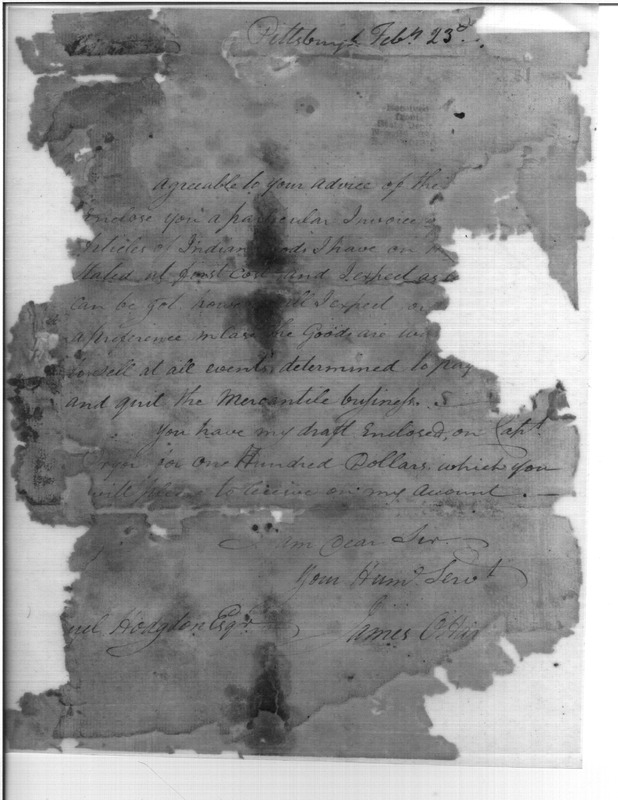 Pittsburgh Feby 23d
Agreeable to your advice of the
enclose you a particular Invoice
Articles of Indian Goods I have on
stated at first cost and I expect as
can be got. I expect
a preference in case the Goods are
to sell at all events determined to pay
and quit the Mercantile business.
You have my draft Enclosed, on Capt.
for one Hundred Dollars which you
will please to receive on my Account.
am Dear Sir
Your Humb Servt
uel Hodgdon Esqr James